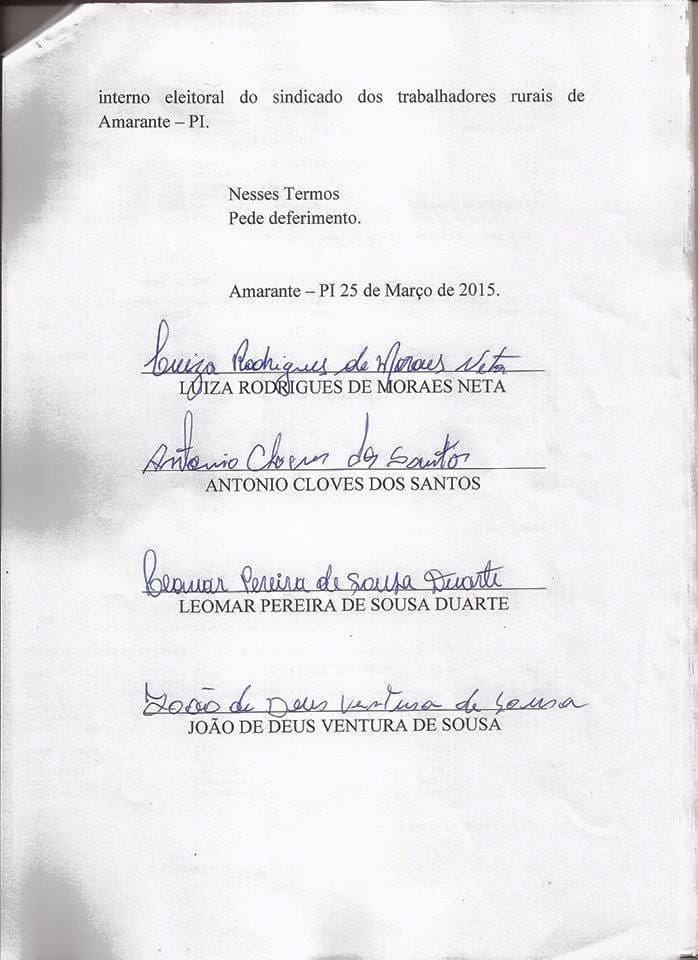 interno eleitoral do sindicado dos trabalhadores rurais de
Amarante – PI.
Nesses Termos
Pede deferimento.
Amarante – PI 25 de Março de 2015.
Luiza Rodrigues de Moraes Neta
LUIZA RODRIGUES DE MORAES NETA
Antonio Cloves dos Santos
ANTONIO CLOVES DOS SANTOS
Leomar Pereira de Sousa Duarte
LEOMAR PEREIRA DE SOUSA DUARTE
João de Deus Ventura de Sousa
JOÃO DE DEUS VENTURA DE SOUSA